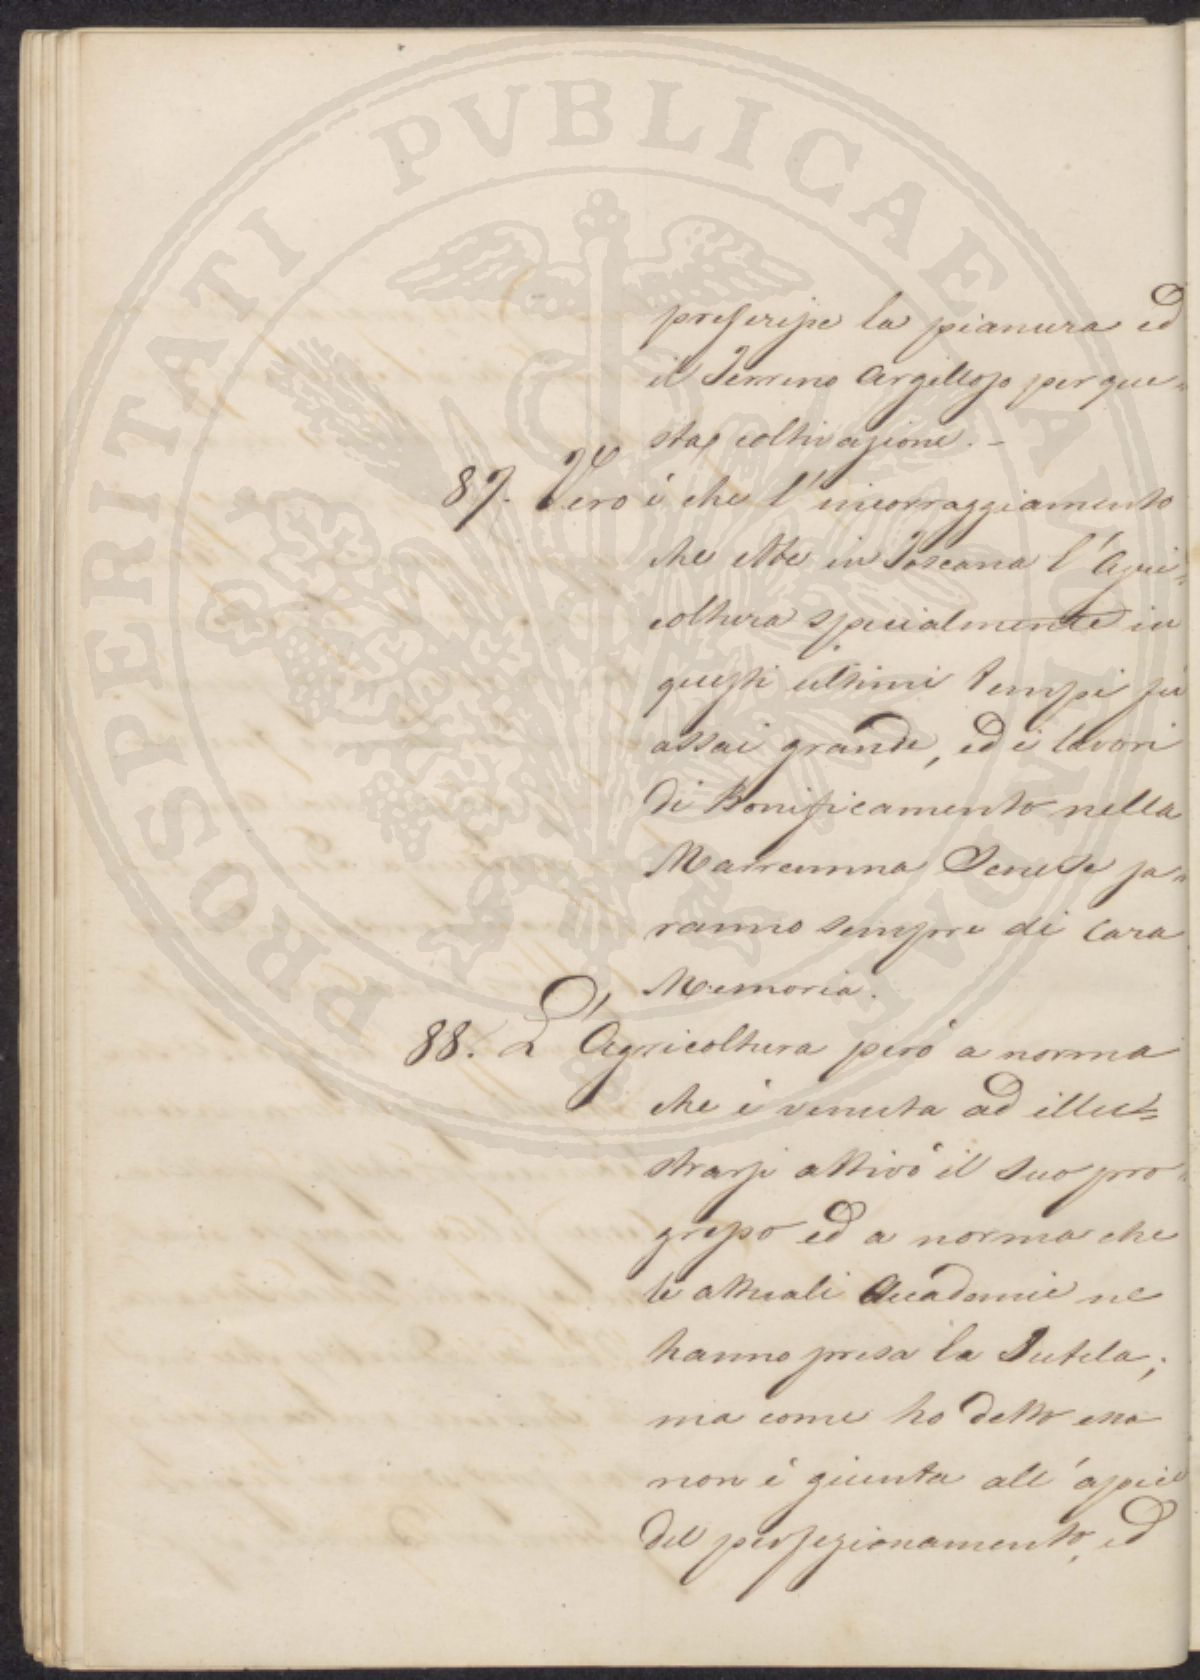 PROSPERITATI PVBLICAE AVGENDAE
preferisce la pianura ed
il Terreno Argilloso per que-
sta coltivazione. -
87. Vero è che l'incorraggiamento
che ebbe in Toscana l'Agri-
coltura specialmente in
questi ultimi tempi fu
assai grande, ed i lavori
di Bonificamento nella
Marremma Senese sa-
ranno sempre di cara
Memoria.
88. L'Agricoltura però a norma
che è venuta ad illu-
strarsi attivò il suo pro-
gresso ed a norma che
le attuali Accademie ne
hanno presa la Tutela;
ma come ho detto essa
non è giunta all'apice
del perfezionamento, ed